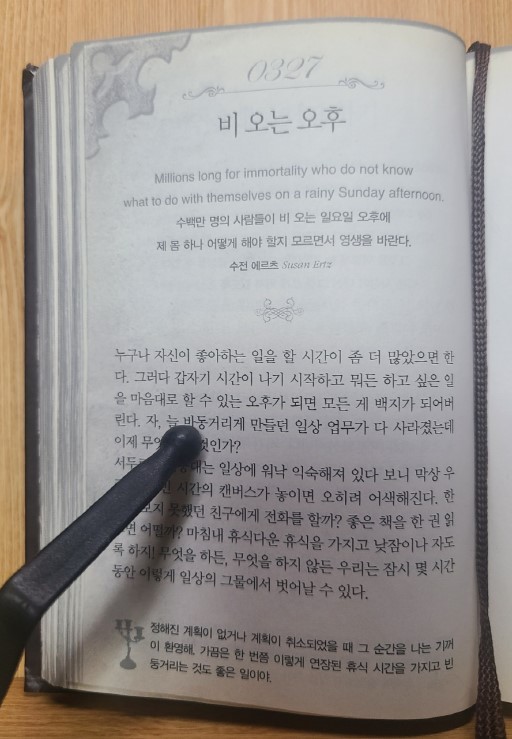 0327
비 오는 오후
Millions long for immortality who do not know
what to do with themselves on a rainy Sunday afternoon.
수백만 명의 사람들이 비 오는 일요일 오후에
제 몸 하나 어떻게 해야 할지 모르면서 영생을 바란다.
수전 에르츠 Susan Ertz
누구나 자신이 좋아하는 일을 할 시간이 좀 더 많았으면 한
다. 그러다 갑자기 시간이 나기 시작하고 뭐든 하고 싶은 일
을 마음대로 할 수 있는 오후가 되면 모든 게 백지가 되어버
린다. 자, 늘 바둥거리게 만들던 일상 업무가 다 사라졌는데
이제 것인가?
일상에 워낙 익숙해져 있다 보니 막상 우
시간의 캔버스가 놓이면 오히려 어색해진다. 한
보지 못했던 친구에게 전화를 할까? 좋은 책을 한 권 읽
면 어떨까? 마침내 휴식다운 휴식을 가지고 낮잠이나 자도
록 하지! 무엇을 하든, 무엇을 하지 않든 우리는 잠시 몇 시간
동안 이렇게 일상의 그물에서 벗어날 수 있다.
정해진 계획이 없거나 계획이 취소되었을 때 그 순간을 나는 기꺼
이 환영해. 가끔은 한 번쯤 이렇게 연장된 휴식 시간을 가지고 빈
둥거리는 것도 좋은 일이야.